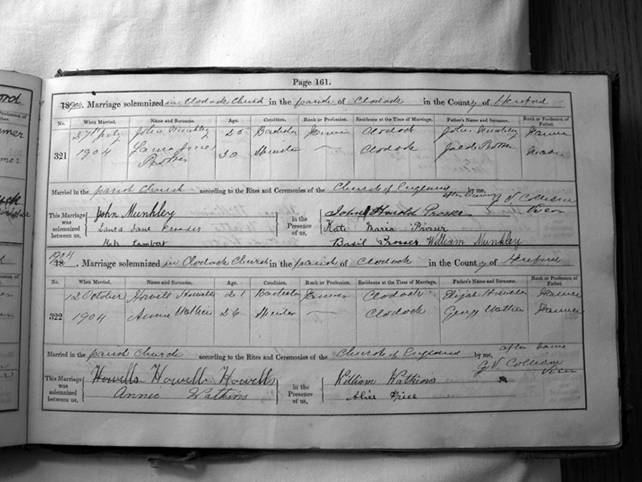 Page 161.
1904. Marriage solemnized in Clodock Church in the parish of Clodock in the County of Hereford
No. When Married. Name and Surname. Age. Condition. Rank or Profession. Residence at the Time of Marriage. Father's Name and Surname. Rank or Profession of Father.
321 27th July 1904 John Munkley Bachelor Farmer Clodock John Munkley Farmer
Laura Jane Prosser 30 Spinster Clodock Prosser
Married in the parish Church according to the Rites and Ceremonies of the Church of England after by me,
G V Collison
Vicar
This Marriage was solemnized between us, John Munkley
Laura Jane Prosser
in the Presence of us, John Harold Prosser
Kate Maria Prosser
Basil Prosser William Munkley
1904. Marriage solemnized in Clodock Church in the parish of Clodock in the County of Hereford
No. When Married. Name and Surname. Age. Condition. Rank or Profession. Residence at the Time of Marriage. Father's Name and Surname. Rank or Profession of Father.
322 12 October 1904 Howell Howells 21 Bachelor Farmer Clodock Howells Farmer
Annie Watkins 26 Spinster Clodock Watkins Farmer
Married in the parish Church according to the Rites and Ceremonies of the Church of England after Banns by me,
G V Collison
Vicar
This Marriage was solemnized between us, Howells Howell Howells
Annie Watkins
in the Presence of us, William Watkins
Alice Price